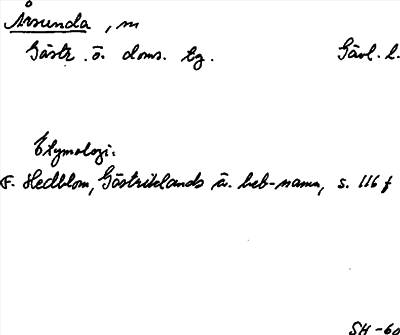 Årsunda, m
Gästr. ö. doms. tg. Gävl. l.
Etymologi:
F. Hedblom, Gästriklands ä. beb-namn, s. 116 f
SH-60